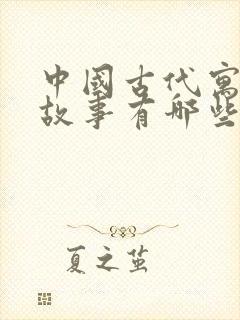 中國古代寓
故事有哪些
夏之茧